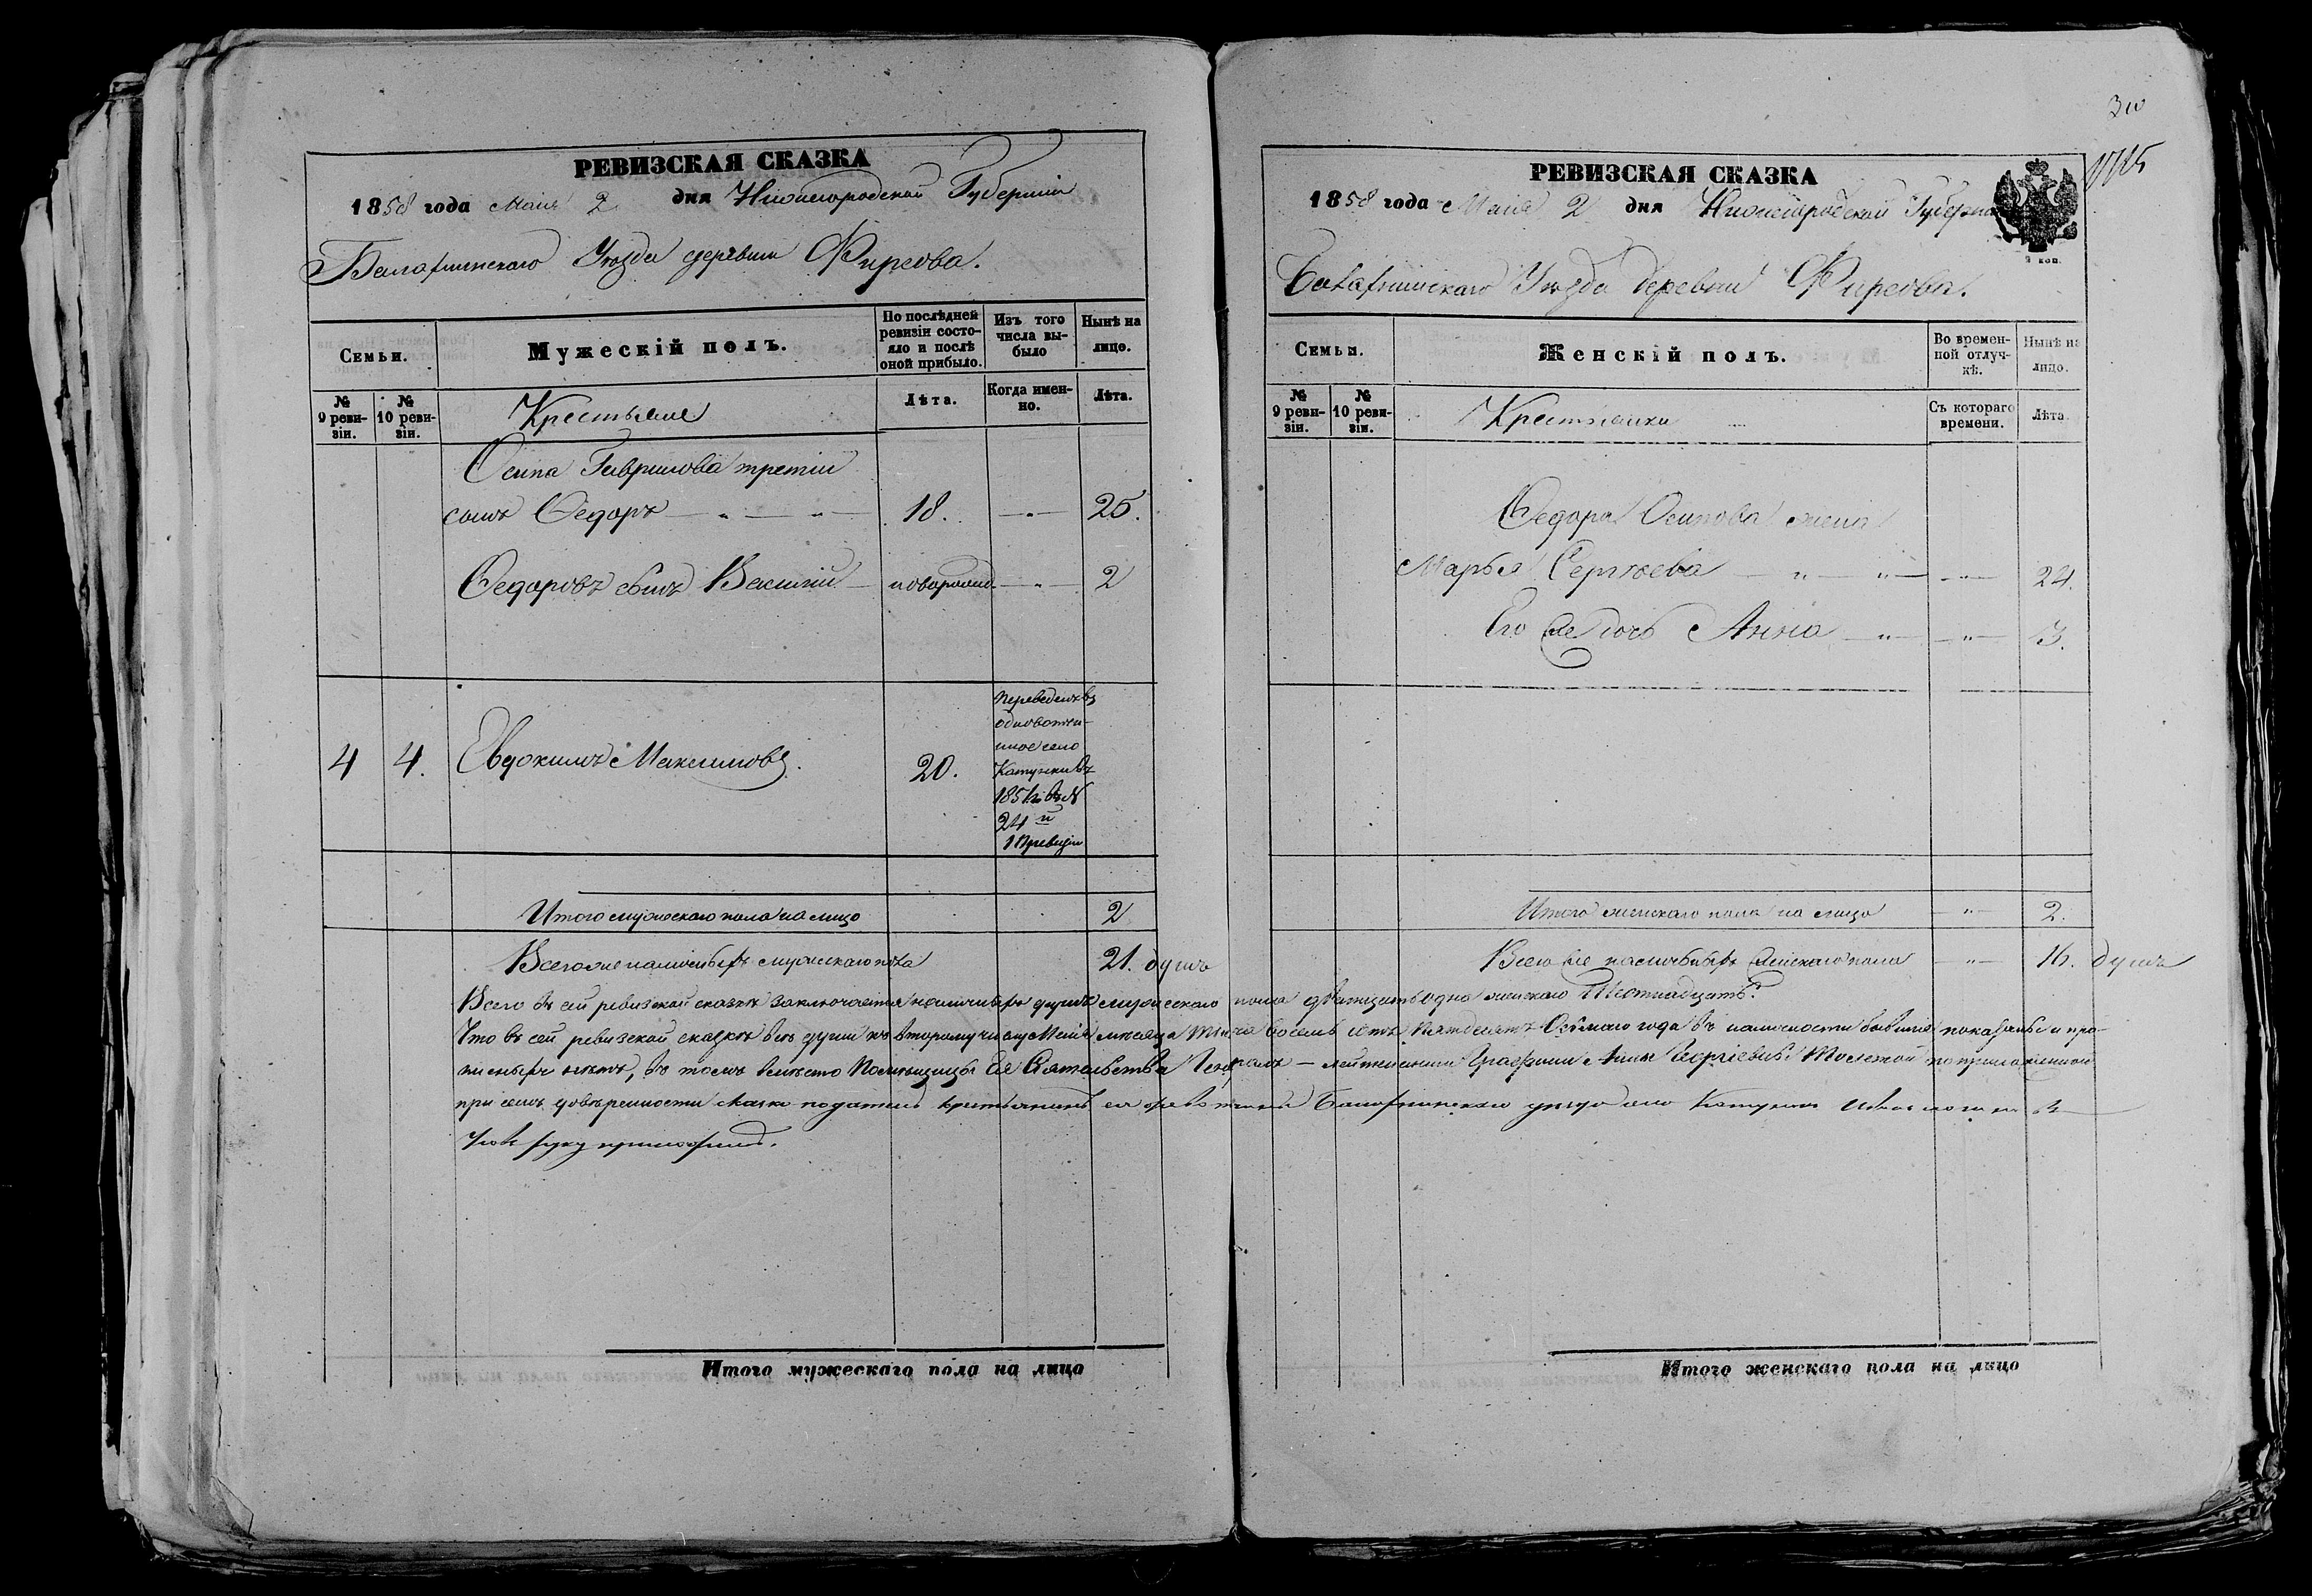 РЕВИЗСКАЯ СКАЗКА
1858 года Маія 2 дня Нижегородской Губерніи
Балахнинскаго Уѣзда деревни Фирсова.
Семьи.
Мужескій полъ.
По послѣдней ревизіи состояло и послѣ оной прибыло.
Изъ того числа выбыло
Нынѣ на лицо.
№ 9 ревизіи.
№ 10 ревизіи.
Крестьяне
Лѣта.
Когда именно.
Лѣта.
Осипа Гаврилова третій
сынъ Федоръ — „ — „ — 18. — „ — 25.
Федоровъ сынъ Василій — новорожд. — „ — 2
4 4. Евдокимъ Максимовъ. 20.
Переведенъ въ
одновотчи-
нное село
Катунки въ
185
24
ревизіи
Итого мужескаго пола на лицо 2
Всего же наличныхъ мужескаго пола 21. душъ
Итого мужескаго пола на лицо
30
РЕВИЗСКАЯ СКАЗКА
1858 года Маія 2 дня Нижегородской Губерніи
2 коп.
Балахнинскаго Уѣзда деревни Фирсова.
Семьи.
Женскій полъ.
Во временной отлучкѣ.
Нынѣ на лицо.
№ 9 ревизіи.
№ 10 ревизіи.
Крестьянки
Съ котораго времени.
Лѣта
Федора Осипова жена
Марья Сергѣева — „ — „ — — „ — 24.
Его же дочь Анна — „ — — „ — 3.
Итого женскаго пола на лицо — „ — 2.
Всего же наличныхъ женскаго пола — „ — 16. душъ
Всего въ сей ревизской сказкѣ заключается наличныхъ душъ мужескаго пола двадцать одна женскаго Шестнадцать.
Что въ сей ревизской сказкѣ всѣ души къ второму числу Маія мѣсяца Тысяча восемь сотъ пятдесятъ Осьмаго года въ наличности бывшія показаны и про-
писныхъ нѣтъ, въ томъ вмѣсто Помѣщицы Ея Сіятельства Генералъ — лейтенантши Графини Анны Георгіевны Толстой по приложенной
при семъ довѣренности сказко податель крестьянинъ ея вотчины Балахнинскаго уѣзда села Катунокъ
руку приложилъ.
Итого женскаго пола на лицо